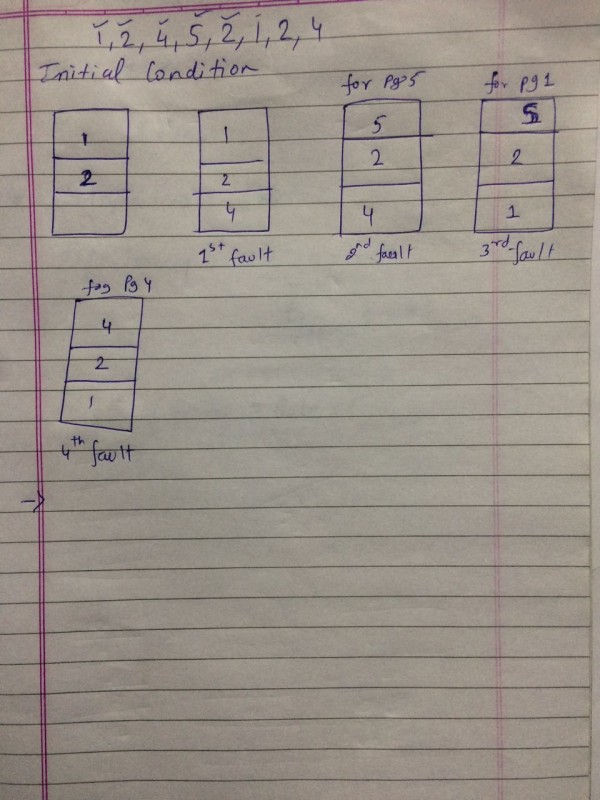 1, 2, 4, 5, 2, 1, 2, 4
Initial Condition
for pg 5
for pg 1
1
2
1
2
4
5
2
4
5
2
1
1st fault
2nd fault
3rd fault
for Pg 4
4
2
1
4th fault
→